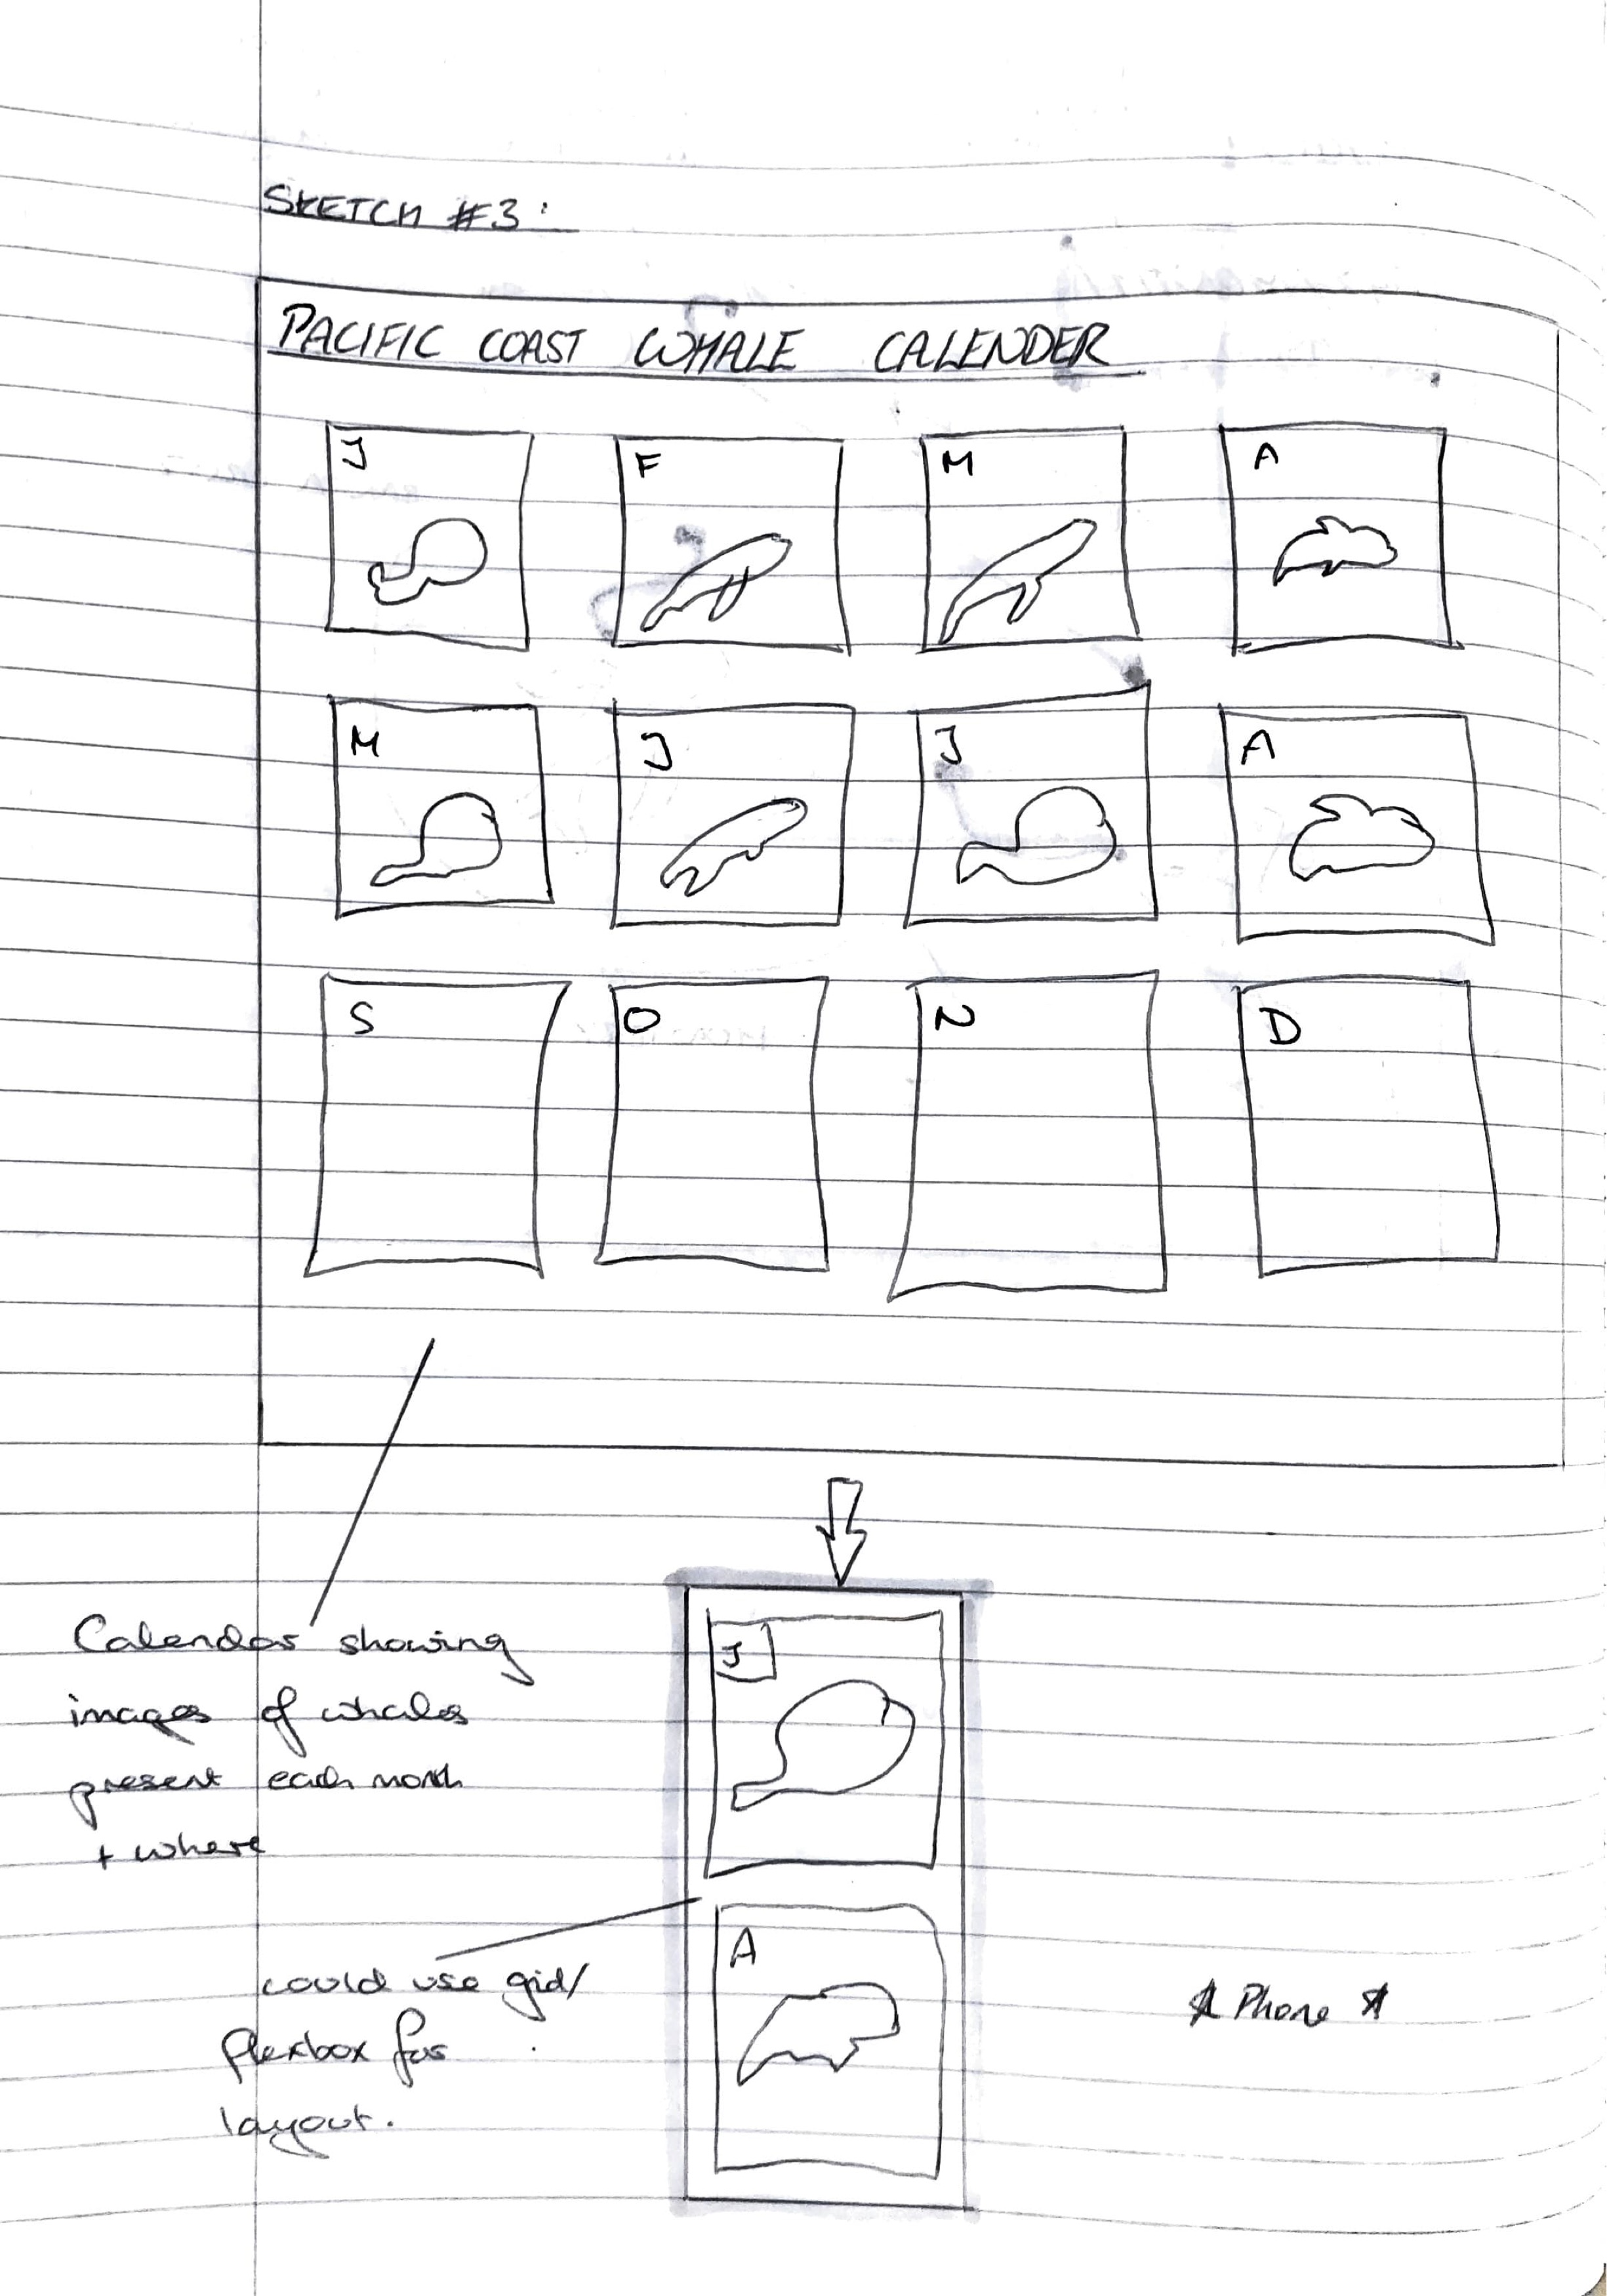 SKETCH #3:
PACIFIC COAST WHALE CALENDER
J F M A
M J J A
S O N D
Calendar showing
images of whales
present each month
+ where
J
A
could use grid/
flexbox for
layout.
* Phone *